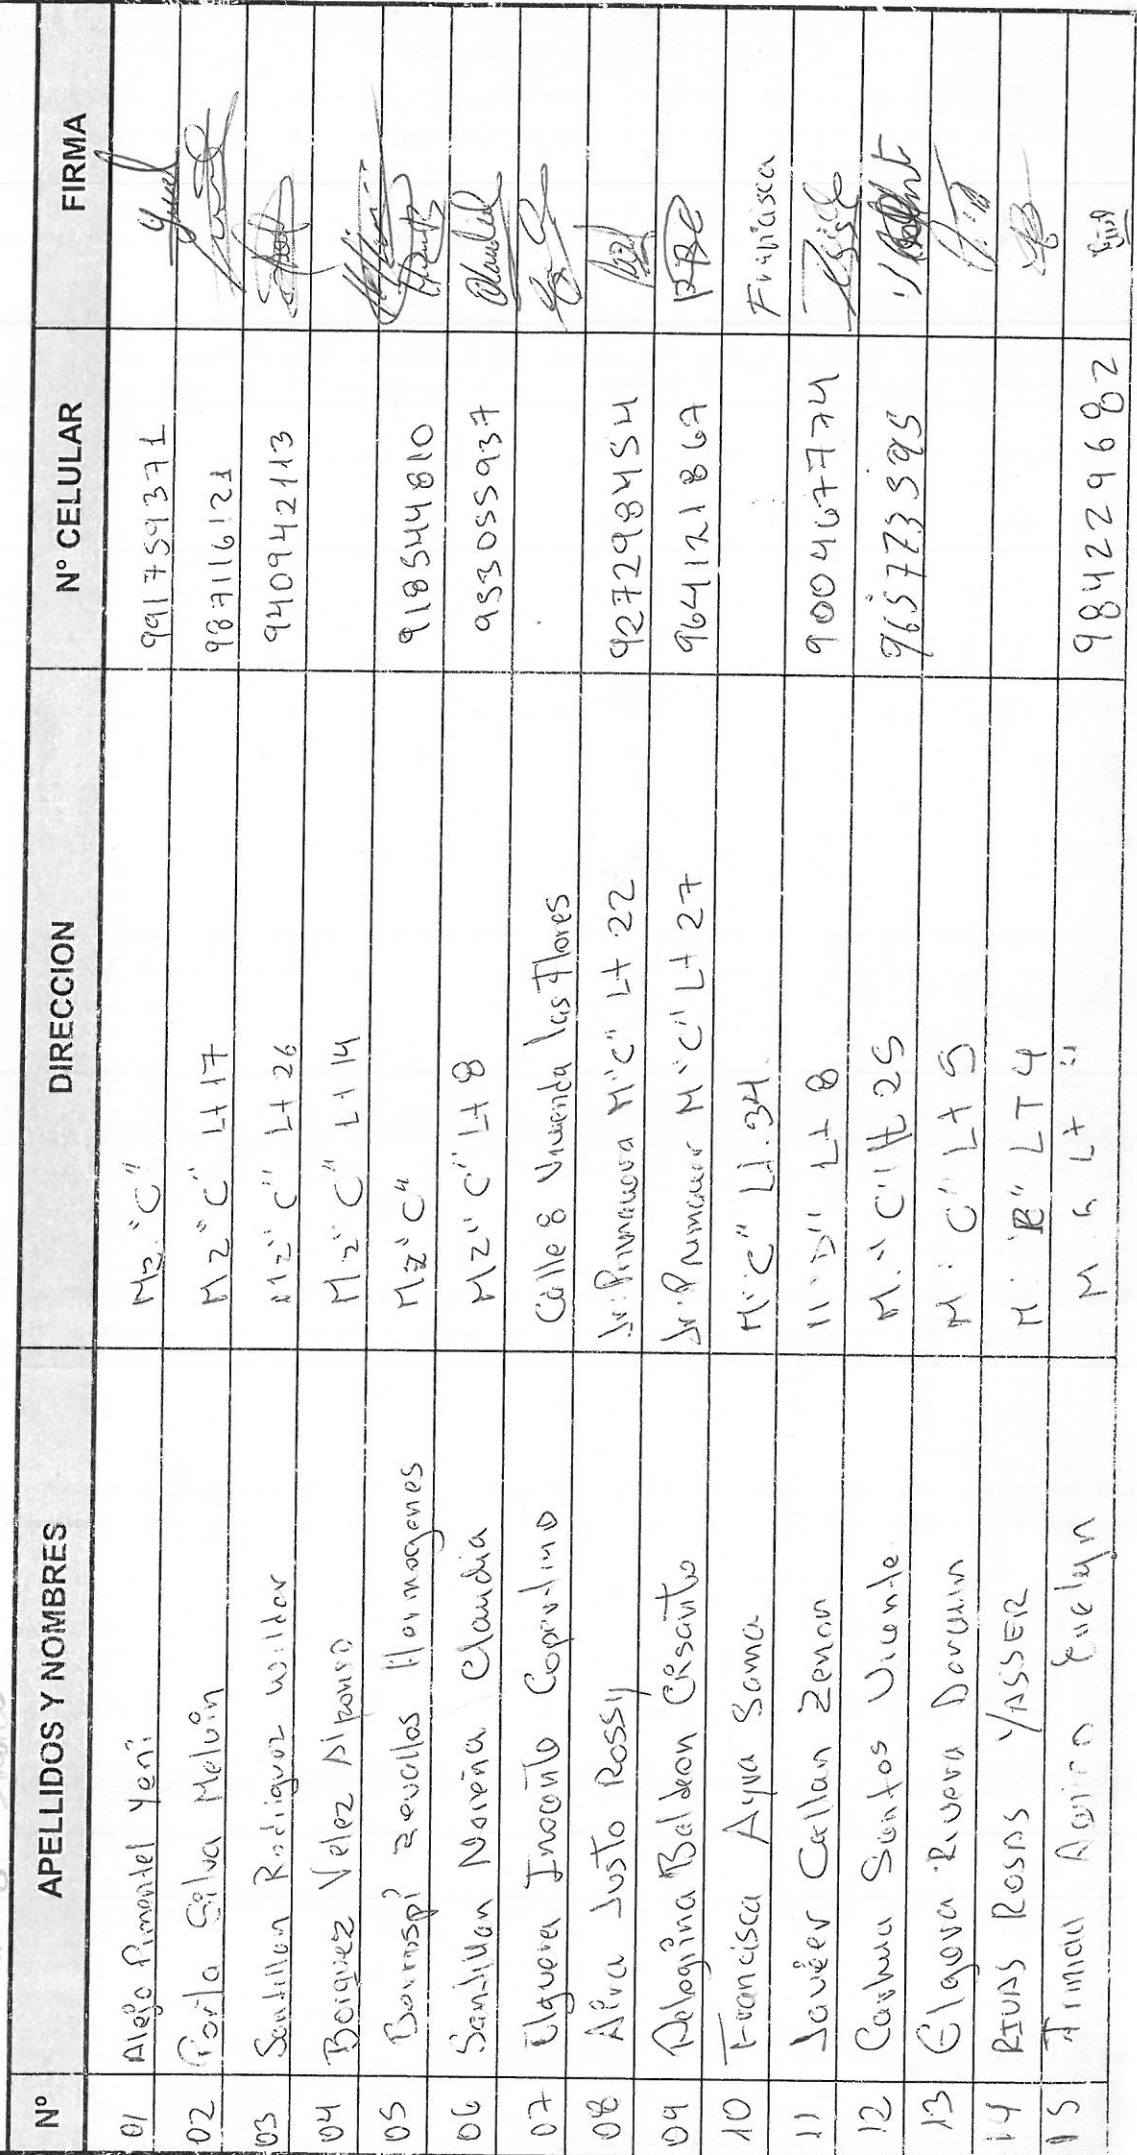 N° APELLIDOS Y NOMBRES DIRECCION N° CELULAR FIRMA
01 Alejo Pimentel Yeni Mz. "C" 991759371
02 Porta Silva Melvin Mz "C" Lt 17 987116121
03 Santillan Rodriguez Wilder Mz "C" Lt 26 940942113
04 Borquez Velez Alponso Mz "C" Lt 14
05 Zevallos Hermogenes Mz "C" 918544810
06 Santillan Noreña Claudia Mz "C" Lt 8 953055937 Claudia
07 Elguera Inocente Calle 8 Vivienda las Flores
08 Aira Justo Rossy Jr. Primavera M "C" Lt 22 927298454
09 Pelegrina Baldeon Crisanto Jr. M "C" Lt 27 964121867
10 Francisca Ayra Sama M. "C" Lt. 34 Francisca
11 Javier Callan Zenon Lt 8 900467774
12 Carhua Santos Vicente M. "C" Lt 25 965773595
13 Elguera Rivera Darwin M. "C" Lt 5
14 RIVAS ROSAS YASSER M. "B" LT 4
15 Evelyn M Lt 984229682